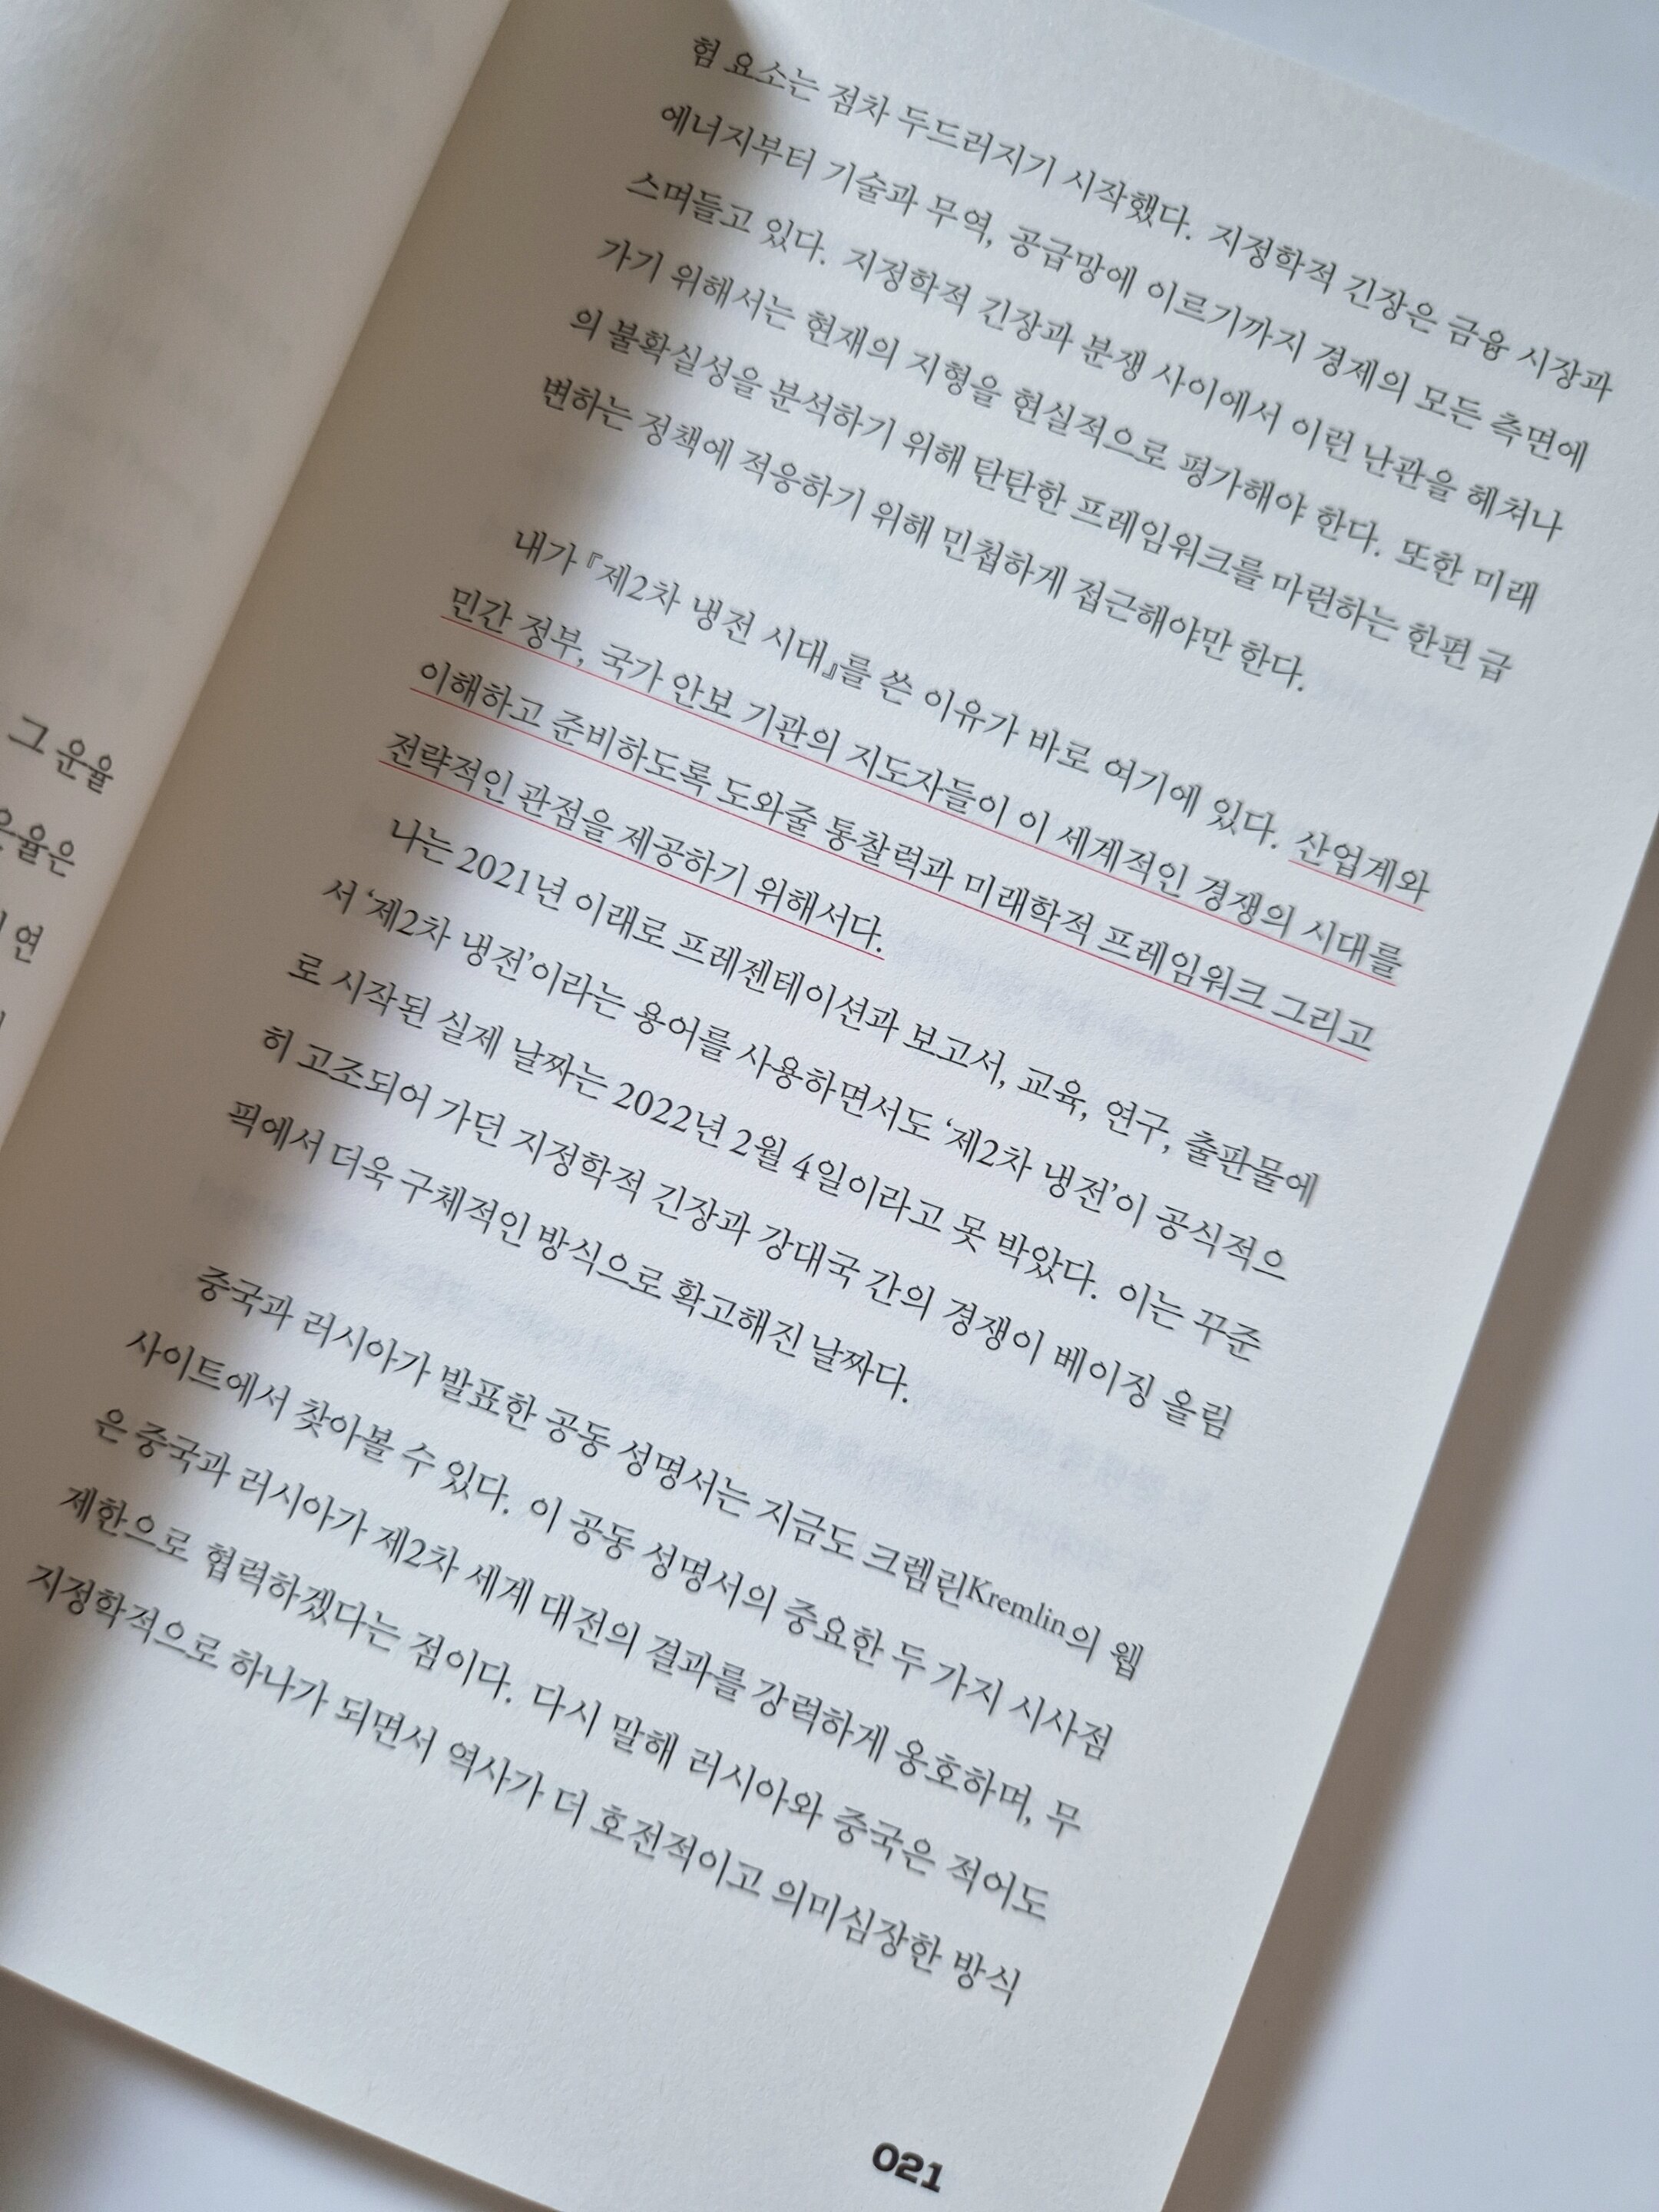 그 운율
운율은
연
험 요소는 점차 두드러지기 시작했다. 지정학적 긴장은 금융 시장과
에너지부터 기술과 무역, 공급망에 이르기까지 경제의 모든 측면에
스며들고 있다. 지정학적 긴장과 분쟁 사이에서 이런 난관을 헤쳐나
가기 위해서는 현재의 지형을 현실적으로 평가해야 한다. 또한 미래
의 불확실성을 분석하기 위해 탄탄한 프레임워크를 마련하는 한편 급
변하는 정책에 적응하기 위해 민첩하게 접근해야만 한다.
내가 『제2차 냉전 시대』를 쓴 이유가 바로 여기에 있다. 산업계와
민간 정부, 국가 안보 기관의 지도자들이 이 세계적인 경쟁의 시대를
이해하고 준비하도록 도와줄 통찰력과 미래학적 프레임워크 그리고
전략적인 관점을 제공하기 위해서다.
나는 2021년 이래로 프레젠테이션과 보고서, 교육, 연구, 출판물에
서 ‘제2차 냉전’이라는 용어를 사용하면서도 ‘제2차 냉전’이 공식적으
로 시작된 실제 날짜는 2022년 2월 4일이라고 못 박았다. 이는 꾸준
히 고조되어 가던 지정학적 긴장과 강대국 간의 경쟁이 베이징 올림
픽에서 더욱 구체적인 방식으로 확고해진 날짜다.
중국과 러시아가 발표한 공동 성명서는 지금도 크렘린Kremlin의 웹
사이트에서 찾아볼 수 있다. 이 공동 성명서의 중요한 두 가지 시사점
은 중국과 러시아가 제2차 세계 대전의 결과를 강력하게 옹호하며, 무
제한으로 협력하겠다는 점이다. 다시 말해 러시아와 중국은 적어도
지정학적으로 하나가 되면서 역사가 더 호전적이고 의미심장한 방식
021